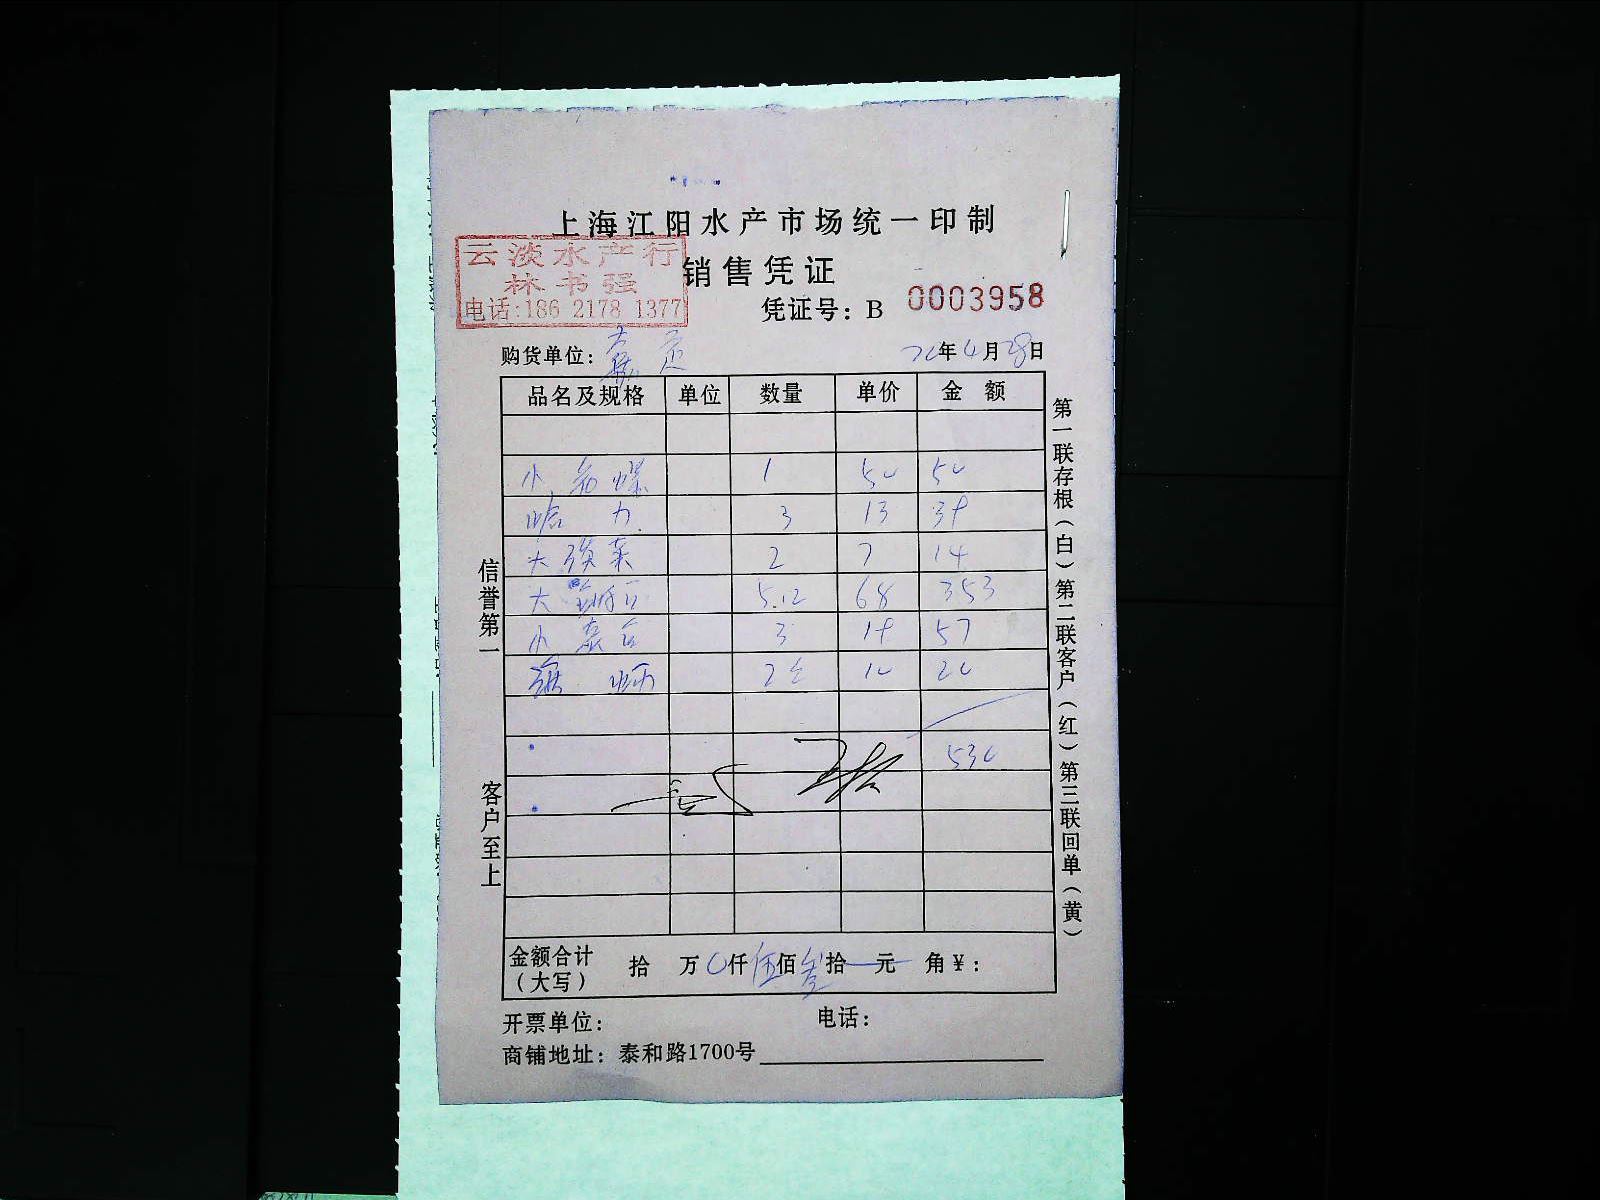 上海江阳水产市场统一印制
云淡水产行
林书强
电话:186 2178 1377
销售凭证
凭证号：B 0003958
购货单位：嘉定 年4月28日
品名及规格 单位 数量 单价 金额
小 1 50 50
哈力 3 13 39
大 菜 2 7 14
大 5.12 68 353
小 3 19 57
2 10 20
530
金额合计（大写） 拾 万 0仟伍佰叁拾 元 角¥：
开票单位： 电话：
商铺地址：泰和路1700号
信誉第一
客户至上
第一联存根（白）第二联客户（红）第三联回单（黄）